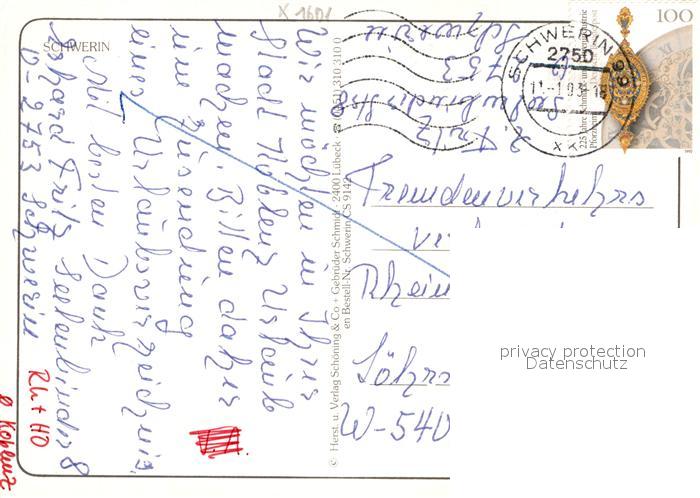 SCHWERIN
Wir möchten in Ihrer
Stadt Koblenz Urlaub
machen. Bitten daher
um Zusendung
eines Urlaubsverzeichnis.
Mit besten Dank
Erhard Fritz
W-2753 Schwerin
Rh + HO
Koblenz
X 1601
© Herst. u. Verlag Schöning & Co + Gebrüder Schmidt · 2400 Lübeck ☎ (0451) 310 310 0
en Bestell-Nr. Schwerin CS 9142
Fritz
2753
Schwerin
SCHWERIN
2750
100
225 Jahre Schmuck- und Uhrenindustrie
Pforzheim
Fremdenverkehrs
ve
Rhein
Löhrs
W-540
privacy protection
Datenschutz